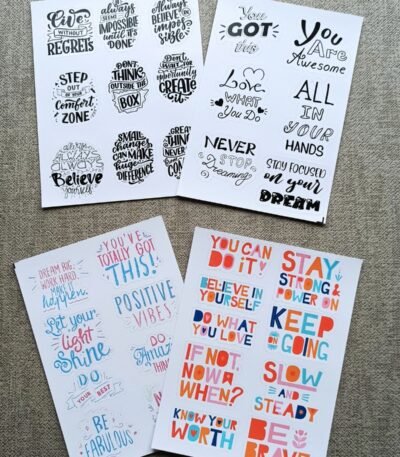 Live
WITHOUT
REGRETS
always
SEEMS
IMPOSSIBLE
until it's
DONE
Always
BELIEVE
impos
SIBLE
STEP
OUT
OF YOUR
Comfort
ZONE
DON'T
THINK
OUTSIDE THE
BOX
Don't
opportunity
CREATE
it
ALWAYS
Believe
yourself
SMALL
changes
CAN MAKE
huge
DIFFERENCE
GREAT
THIN
NEVER
You
GOT
this
You
Are
Awesome
Love
WHAT
You Do
ALL
IN
YOUR
HANDS
NEVER
STOP
DREAMING
STAY FOCUSED
on your
DREAM
DREAM BIG,
WORK HARD,
MAKE IT
happen.
YOU'VE
TOTALLY GOT
THIS!
Let your
light
Shine
POSITIVE
VIBES
DO
YOUR BEST
DO
AMAZ
THIN
BE
FABULOUS
YOU CAN
DO IT
STAY
STRONG &
POWER ON
BELIEVE IN
YOURSELF
DO WHAT
YOU LOVE
KEEP
ON
GOING
IF NOT
NOW
WHEN?
SLOW
AND
STEADY
KNOW YOUR
WORTH
BE
BRAVE